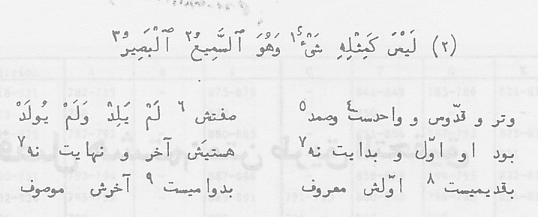 (٢) لَيْسَ كَمِثْلِهِ شَىْءٌ١ وَهُوَ ٱلسَّمِيعُ٢ ٱلْبَصِيرُ٣
وتر و قدّوس و واحدست٤ وصمد٥ صفتش٦ لَمْ يَلِدْ وَلَمْ يُولَدْ
بود او اوّل و بدایت نه٧ هستیَش آخر و نهایت نه٧
بقدیمیست٨ اوّلش معروف بدوامیست٩ آخرش موصوف